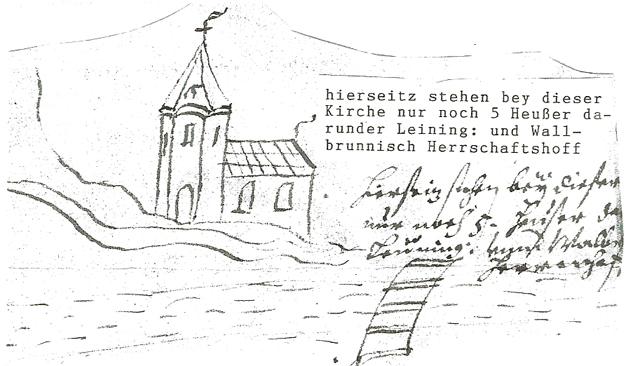 hierseitz stehen bey dieser
Kirche nur noch 5 Heußer da-
runder Leining: und Wall-
brunnisch Herrschaftshoff
bey dieser
nur noch 5. Heußer da
Leining: und Wallbr